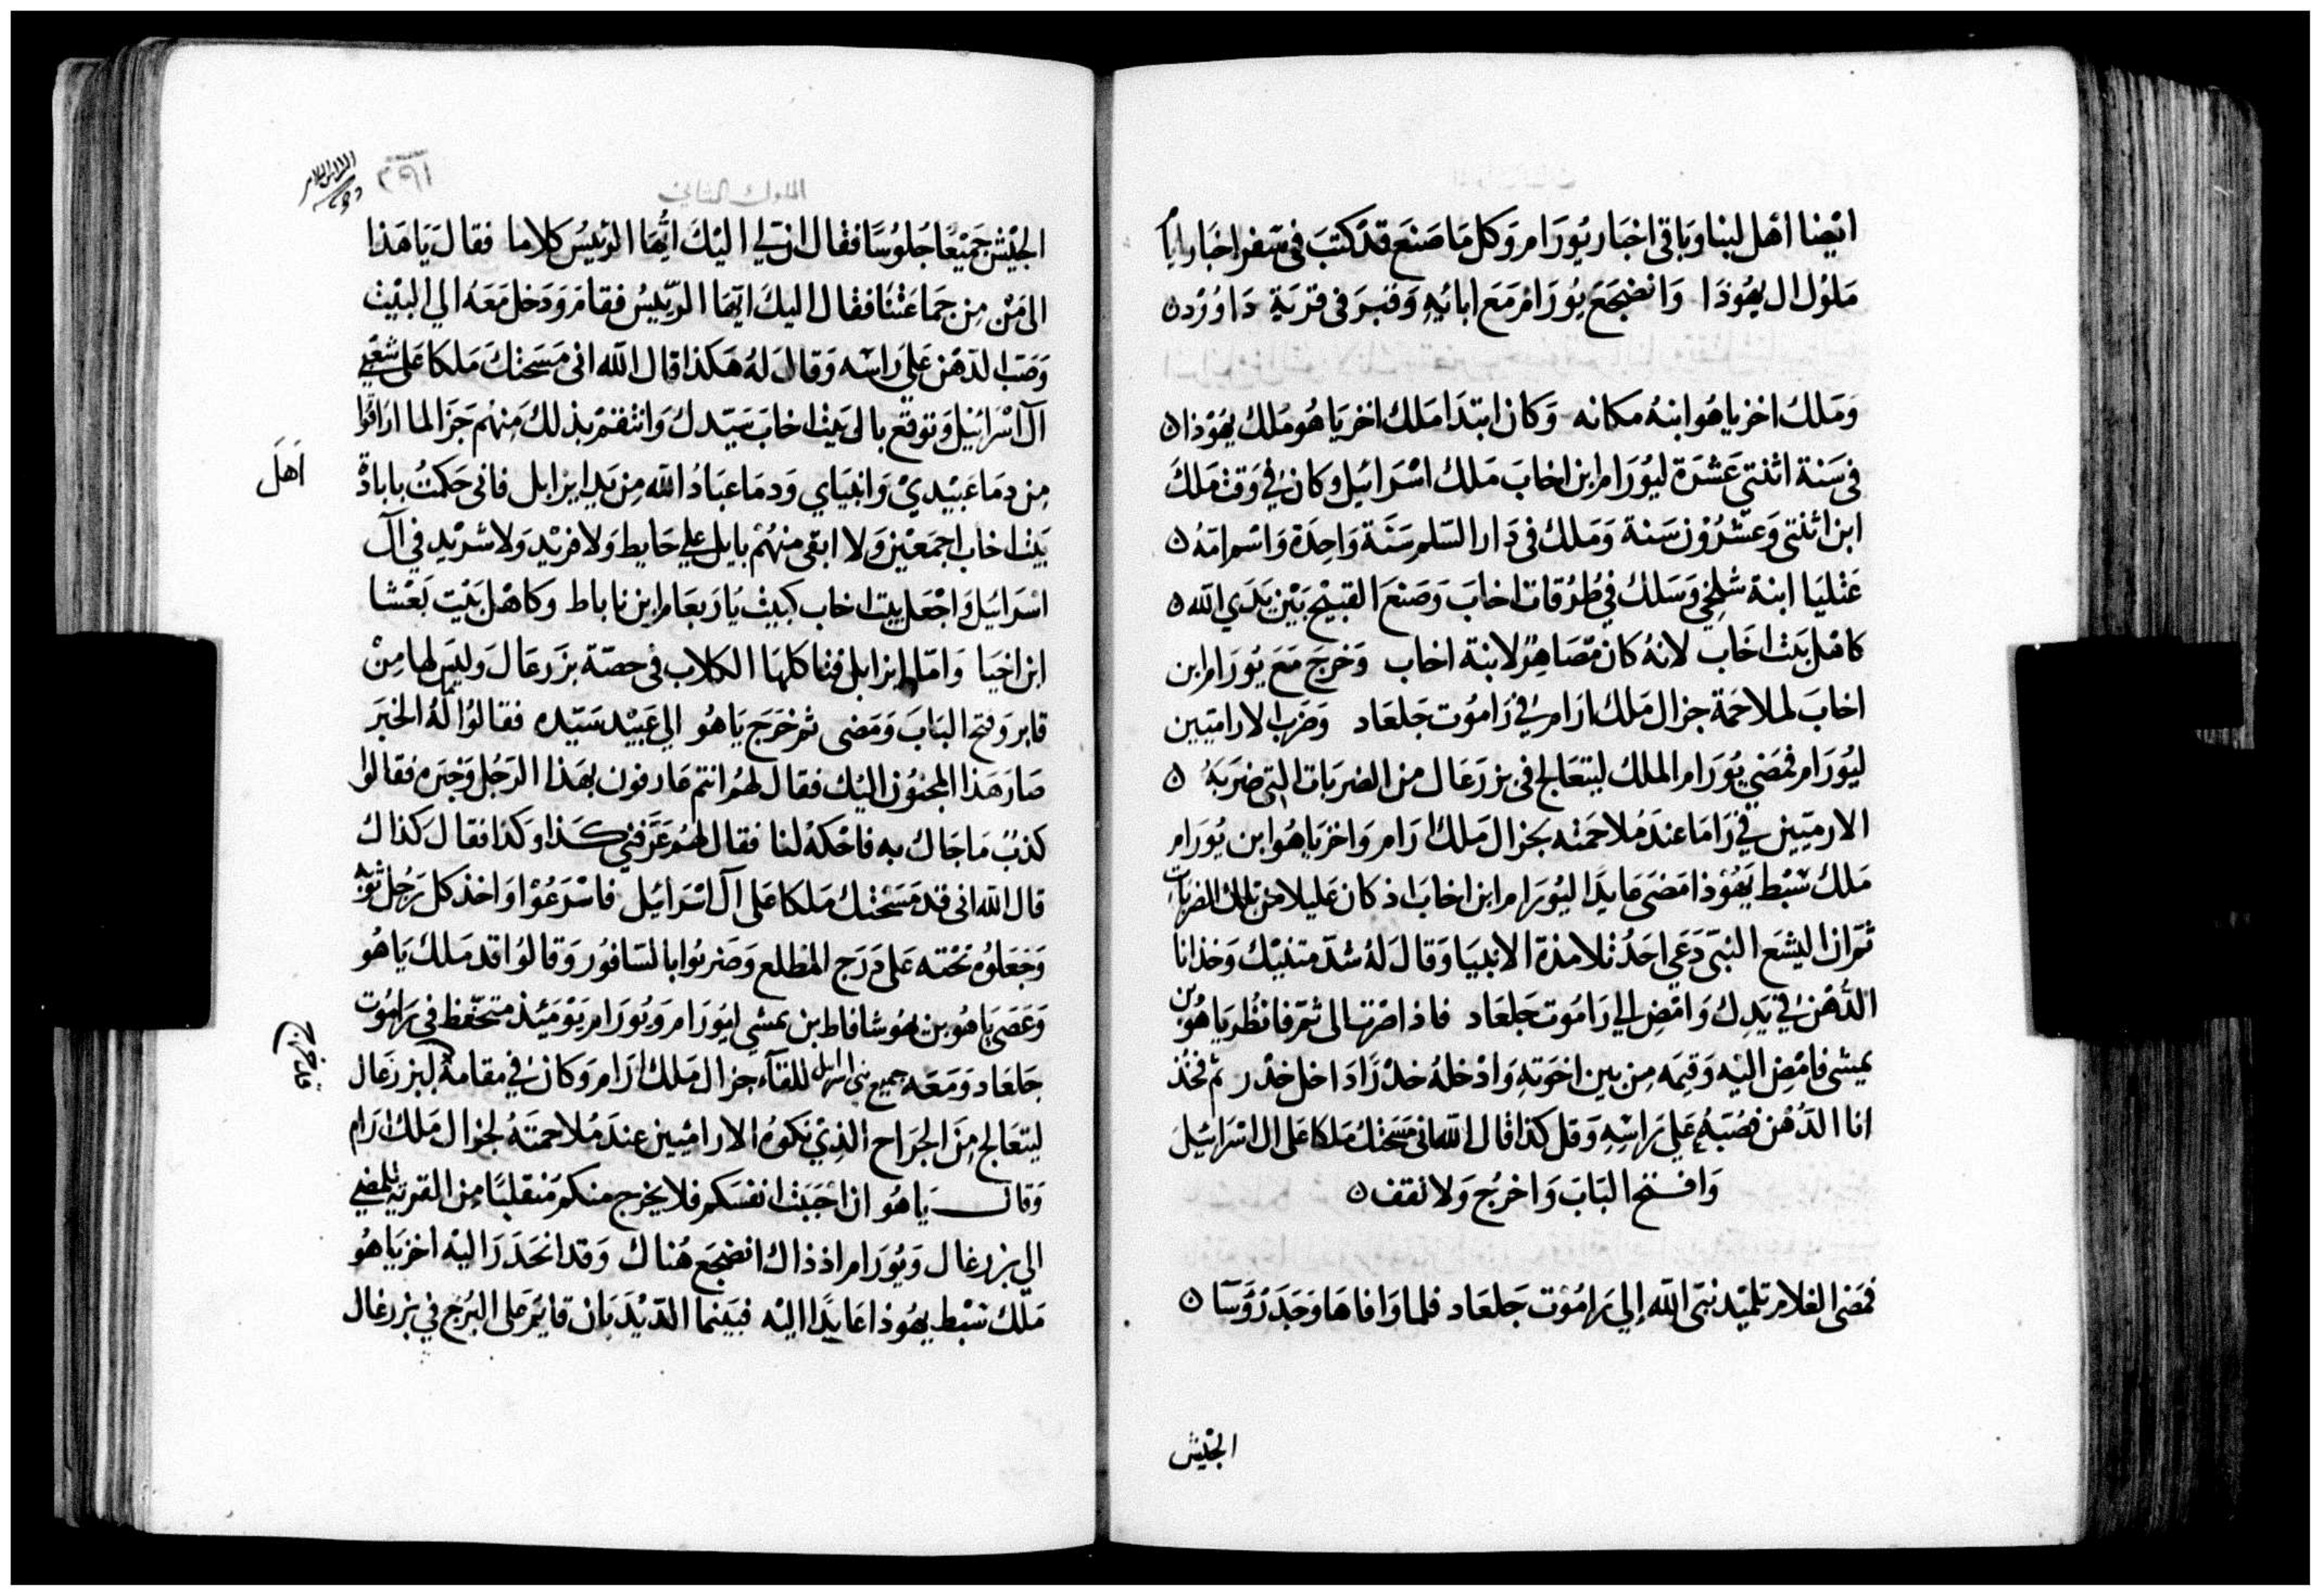 ايضا اهل لبنا وباقي اخبار يورام وكل ما صنع قد كتب في سفر اخبار ايام
ملوك ال يهوذا وانضجع يورام مع ابائه وقبر في قرية داوود
وملك اخزياهو ابنه مكانه وكان ابتدا ملك اخزياهو ملك يهوذا
في سنة اثنتي عشرة ليورام ابن اخاب ملك اسرائيل وكان في وقت ملك
ابن اثنتي وعشرون سنة وملك في دار السلم سنة واحدة واسم امه
عثليا ابنة شلخي وسلك في طرقات اخاب وصنع القبيح بين يدي الله
كاهل بيت اخاب لانه كان مصاهر لابنة اخاب وخرج مع يورام ابن
اخاب لملاحمة جزال ملك ارام في راموت جلعاد وضرب الاراميين
ليورام فمضي يورام الملك ليتعالج في بزرعال من الضربات التي ضربه
الارميين في راما عند ملاحمته بجزال ملك ارام واخزياهو ابن يورام
ملك شبط يهوذا مضى عايدا ليورام ابن اخاب اذ كان عليلا من تلك الضربات
ثم ان اليشع النبي دعي احد تلامذة الانبيا وقال له شد متنيك وخذ انا
الدهن في يدك وامض الي راموت جلعاد فاذا صرت الى ثم فانظر ياهو بن
يمشي فامض اليه وقيمه من بين اخوته وادخله خدرا داخل خدر ثم فخذ
انا الدهن فصبه علي راسه وقل كذا قال الله اني مسحتك ملكا على ال اسرائيل
وافتح الباب واخرج ولا تقف
فمضى الغلام تلميذ نبي الله إلي راموت جلعاد فلما وافاها وجد رؤسا
الجيش
الملوك الثاني
الجيش جميعا جلوسا فقال ان لي اليك ايها الرئيس كلاما فقال ياهذا
الى من من جماعتنا فقال اليك ايها الرئيس فقام ودخل معه الي البيت
وصب الدهن علي راسه وقال له هكذا قال الله اني مسحتك ملكا على شعبي
آل اسرائيل وتوقع بالى بيت اخاب سيدك وانتقم بذلك منهم جزا لما اراقوا
من دما عبيدي وانبياي ودما عباد الله من يد ايزابل فاني حكمت بابادة
اهل
بيت اخاب اجمعين ولا ابقى منهم بايل علي حايط ولا فريد ولا شريد في آل
اسرائيل واجعل بيت اخاب كبيت ياربعام ابن ناباط وكاهل بيت بعشا
ابن اخيا واما ايزابل فتاكلها الكلاب في حصة بزرعال وليس لها من
قابر وفتح الباب ومضى ثم خرج ياهو الي عبيد سيده فقالوا له الخبر
صار هذا المجنون اليك فقال لهم انتم عارفون بهذا الرجل وخبره فقالوا
كذب ما جاك به فاحكه لنا فقال لهم عرفني كذا وكذا فقال كذاك
قال الله اني قد مسحتك ملكا على آل اسرائيل فاسرعوا واخذ كل رجل ثوبه
وجعلوه تحته على درج المطلع وضربوا بالسافور وقالوا قد ملك ياهو
وعصى ياهو بن هو شافاط بن يمشي ليورام ويورام يومئذ متحفظ في راموت
جلعاد ومعه جميع بني اسرائيل للقآء جزال ملك ارام وكان في مقامه ببزرعال
ليتعالج من الجراح الذي نكوه الاراميين عند ملاحمته لجزال ملك ارام
وقال ياهو ان احببت انفسكم فلا يخرج منكم منقلبا من القرية ليمضي
الي بزرغال ويورام اذ ذاك انضجع هناك وقد انحدر اليه اخزياهو
ملك شبط يهوذا عايدا اليه فبينما الديدبان قايم على البرج في بزرغال